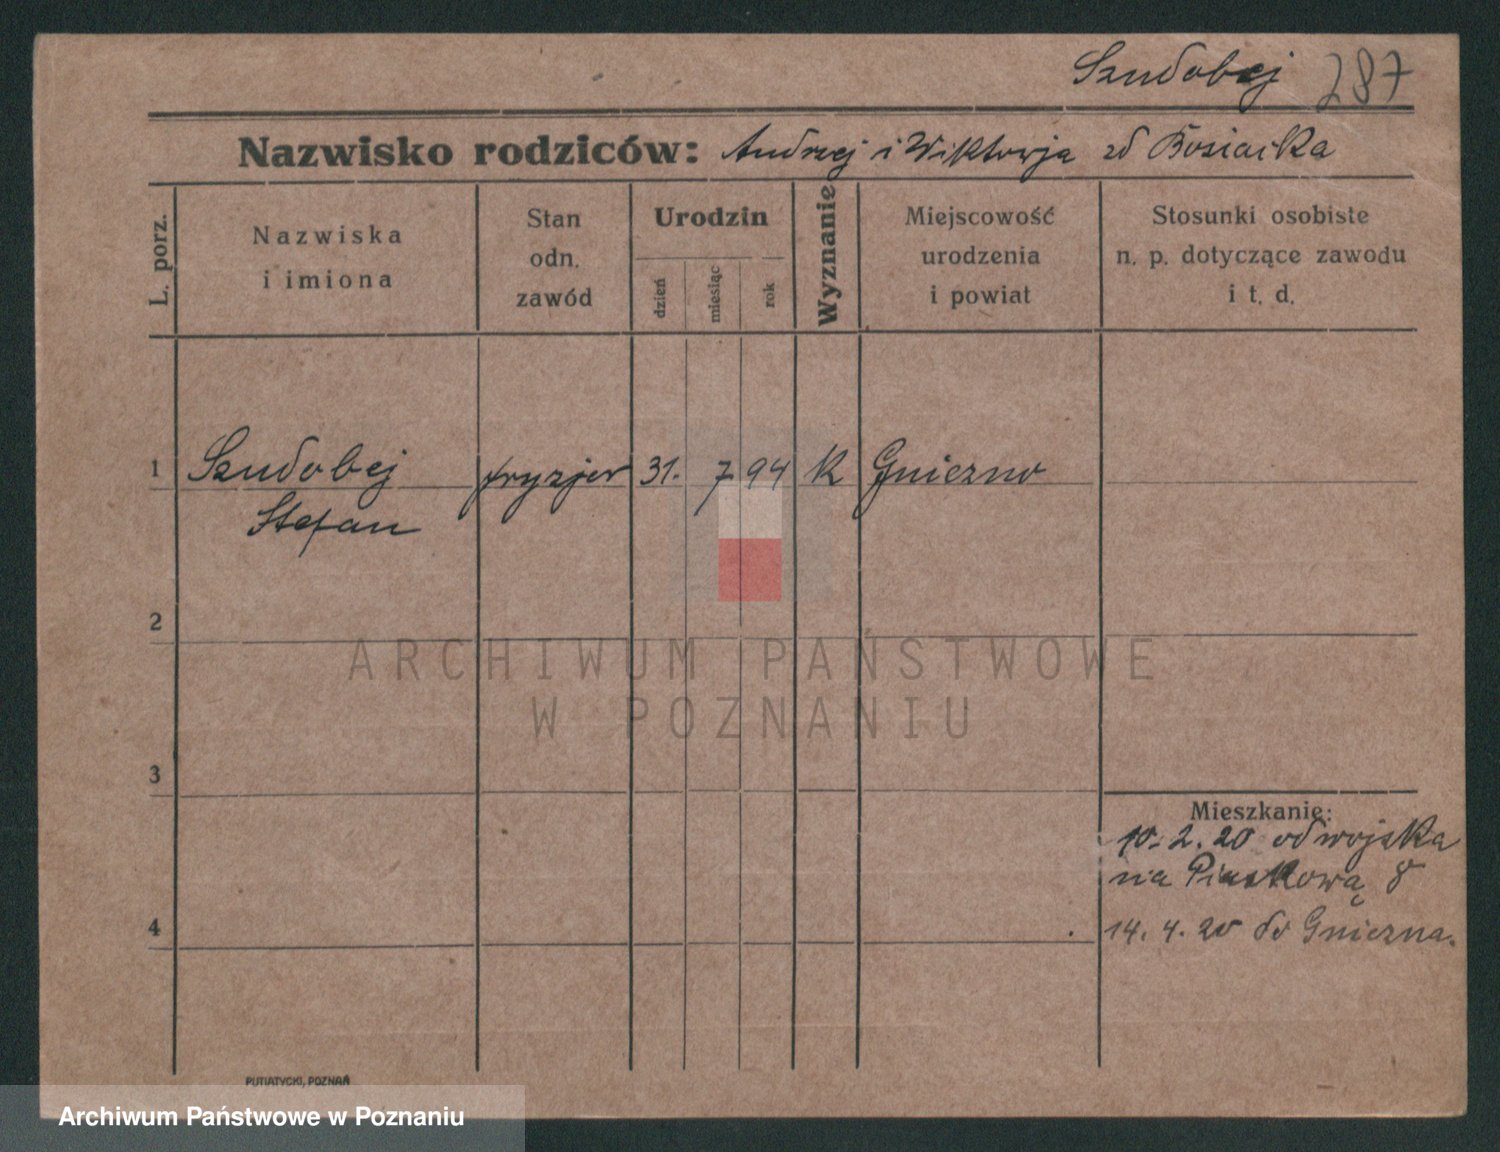 Szudobej 287
Nazwisko rodziców: Andrzej i Wiktorja zd Bosiacka
L. porz.
Nazwiska
i imiona
Stan
odn.
zawód
Urodzin
dzień
miesiąc
rok
Wyznanie
Miejscowość
urodzenia
i powiat
Stosunki osobiste
n. p. dotyczące zawodu
i t. d.
1 Szudobej fryzjer 31. 7 94 K Gniezno
Stefan
2
ARCHIWUM PAŃSTWOWE
W POZNANIU
3
Mieszkanie:
10.2.20 od wojska
na Piaskową 8
4
14.4.20 do Gniezna.
PUTIATYCKI, POZNAŃ
Archiwum Państwowe w Poznaniu